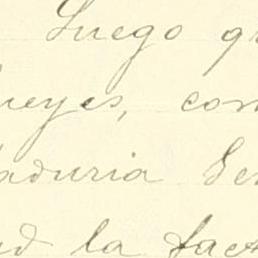 Luego q
ueyes, con
aduria Ge
ud la fact